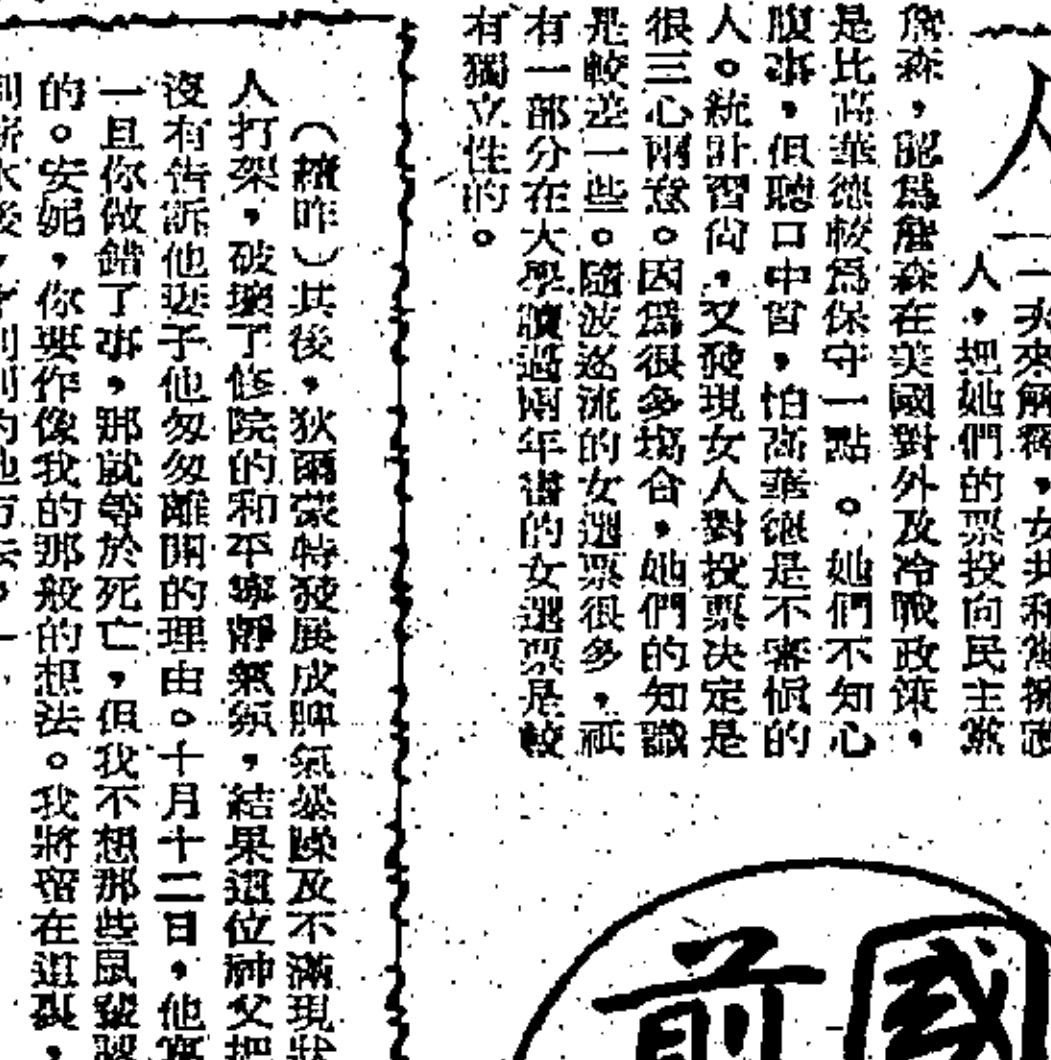 人
一次來解釋，女共和黨

人，把她們的票投向民主黨
詹森，認爲詹森在美國對外及冷戰政策，
是比高華德較爲保守一點。她們不知心
腹事，但聽口中言，怕高華德是不審慎的
人。統計習尚，又發現女人對投票決定是
很三心兩意。因爲很多塲合，她們的知識
是較差一些。隨波逐流的女選票很多，祇
有一部分在大學讀過兩年書的女選票是較
有獨立性的。
國
前
（續昨）其後，狄爾榮特發展成脾氣暴躁及不滿現狀
人打架，破壞了修院的和平寧靜氣氛，結果這位神父把
沒有告訴他妻子他匆匆離開的理由。十月十二日，他寫
一旦你做錯了事，那就等於死亡，但我不想那些鼠
的。安妮，你要作像我的那般的想法。我將留在這裏，
到薪水後，才到別的地方去，一